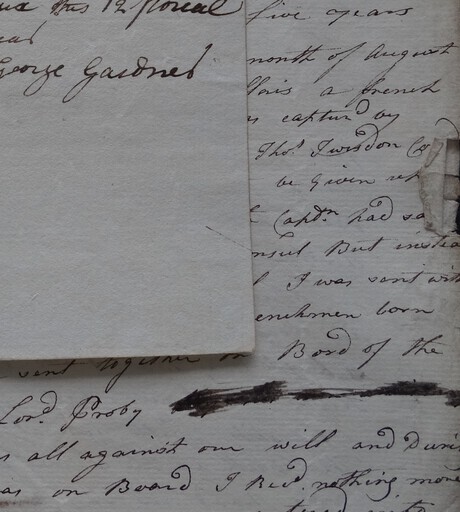 this 12 floreal
George Gardner
five years
month of August
a french
captur'd by
Thos. Twisdon
be given up
Captn. had sa
nsul But instea
I was sent with
enchmen born
sent together on Bord of the
Lord Proby
s all against our will and Duri
as on Board I Recd. nothing more